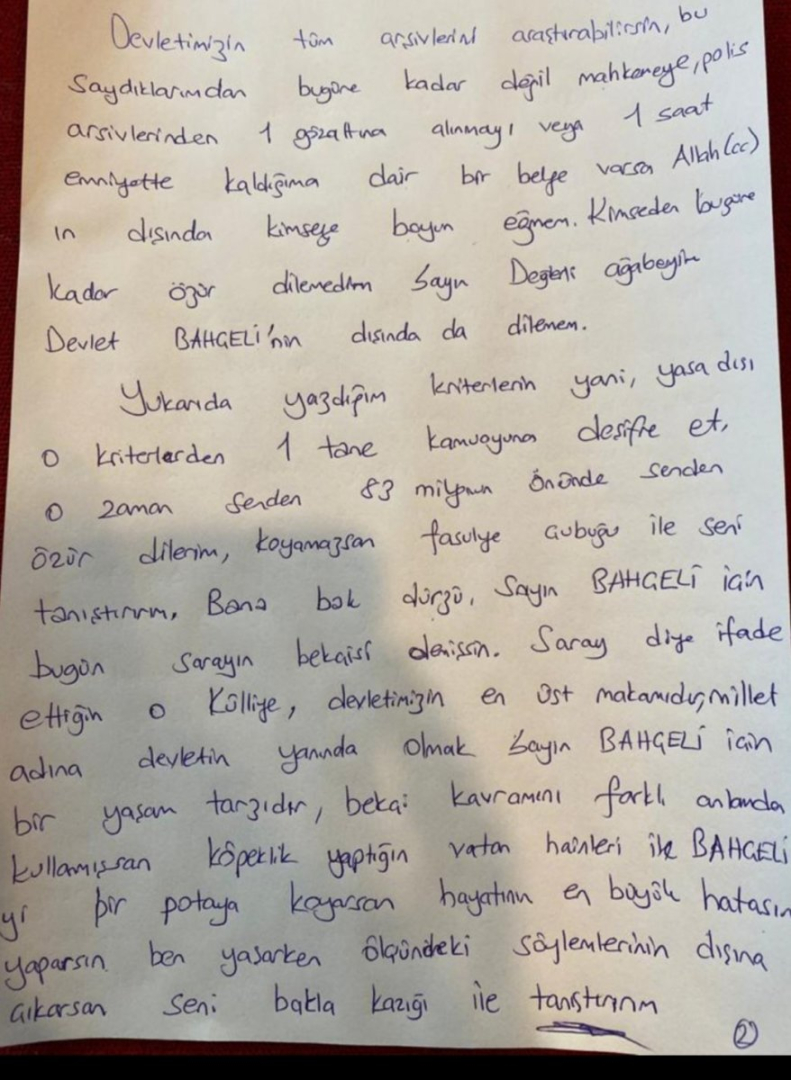 Devletimizin tüm arşivlerini araştırabilirsin, bu
Saydıklarımdan bugüne kadar değil mahkemeye, polis
arşivlerinden 1 gözaltına alınmayı veya 1 saat
emniyette kaldığıma dair bir belge varsa Allah (cc)
ın dışında kimseye boyun eğmem. Kimseden bugüne
kadar özür dilemedim Sayın Değerli ağabeyim
Devlet BAHÇELİ'nin dışında da dilemem.
Yukarıda yazdığım kriterlerin yani, yasa dışı
o kriterlerden 1 tane kamuoyuna deşifre et,
o zaman senden 83 milyonun önünde senden
özür dilerim, koyamazsan fasulye çubuğu ile seni
tanıştırırım, Bana bak dürzü, Sayın BAHÇELİ için
bugün sarayın bekçisi demişsin. Saray diye ifade
ettiğin o Külliye, devletimizin en üst makamıdır, millet
adına devletin yanında olmak Sayın BAHÇELİ için
bir yaşam tarzıdır, bekçi kavramını farklı anlamda
kullanmışsan köpeklik yaptığın vatan hainleri ile BAHÇELİ
yi bir potaya koyarsan hayatının en büyük hatasın
yaparsın ben yaşarken ölçündeki söylemlerinin dışına
çıkarsan seni bakla kazığı ile tanıştırırım
2